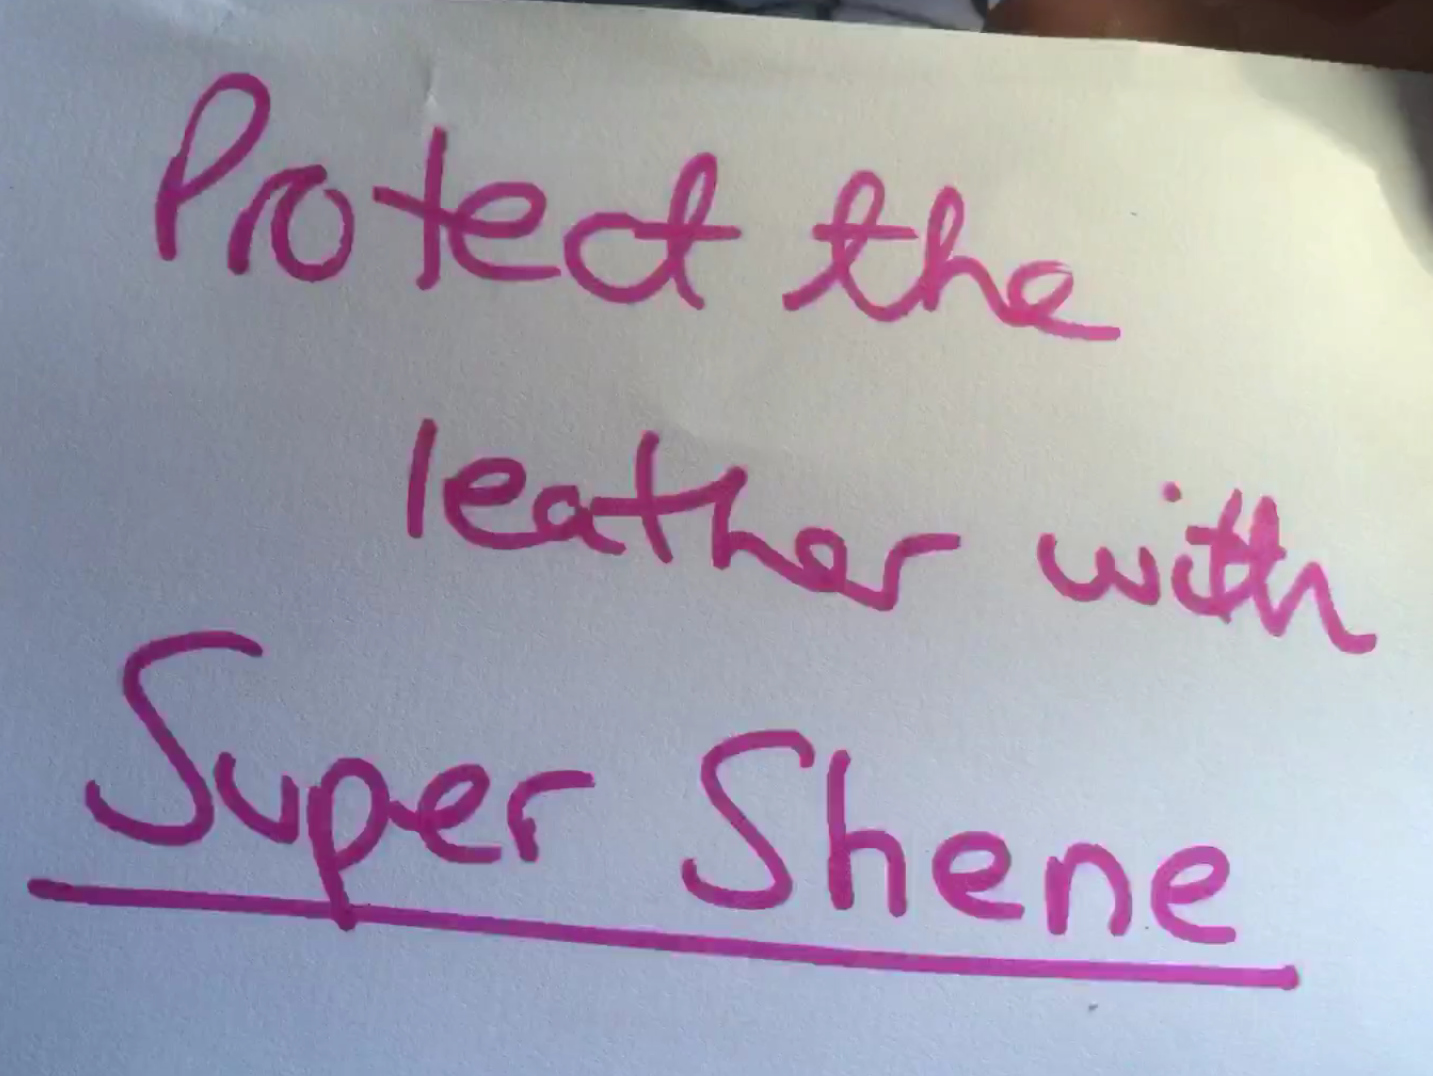 Protect the
leather with
Super Shene